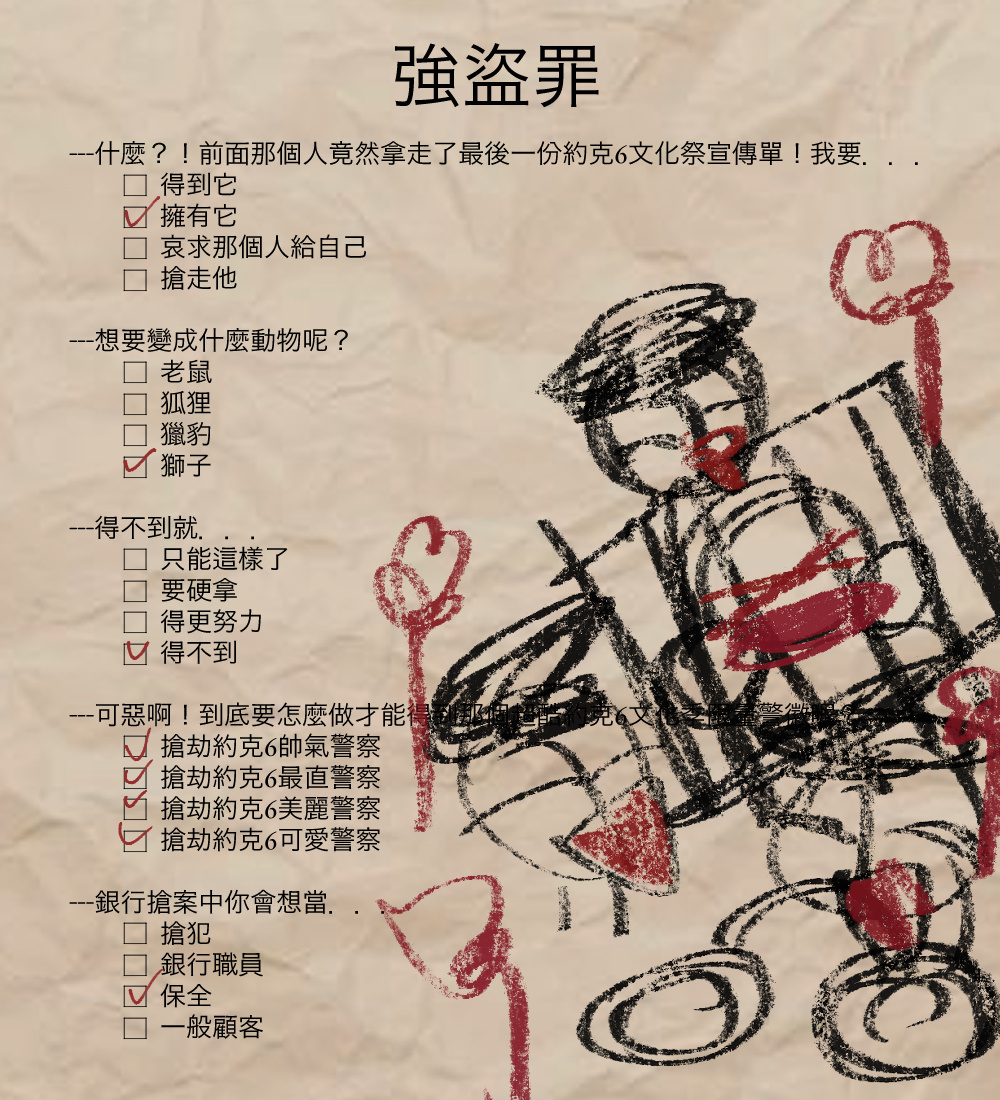 強盜罪
---什麼？！前面那個人竟然拿走了最後一份約克6文化祭宣傳單！我要. . .
□ 得到它
☑ 擁有它
□ 哀求那個人給自己
□ 搶走他
---想要變成什麼動物呢？
□ 老鼠
□ 狐狸
□ 獵豹
☑ 獅子
---得不到就. . .
□ 只能這樣了
□ 要硬拿
□ 得更努力
☑ 得不到
---可惡啊！到底要怎麼做才能得到那個超酷約克6文化季限量警徽呢？
☑ 搶劫約克6帥氣警察
☑ 搶劫約克6最直警察
☑ 搶劫約克6美麗警察
☑ 搶劫約克6可愛警察
---銀行搶案中你會想當. . .
□ 搶犯
□ 銀行職員
☑ 保全
□ 一般顧客